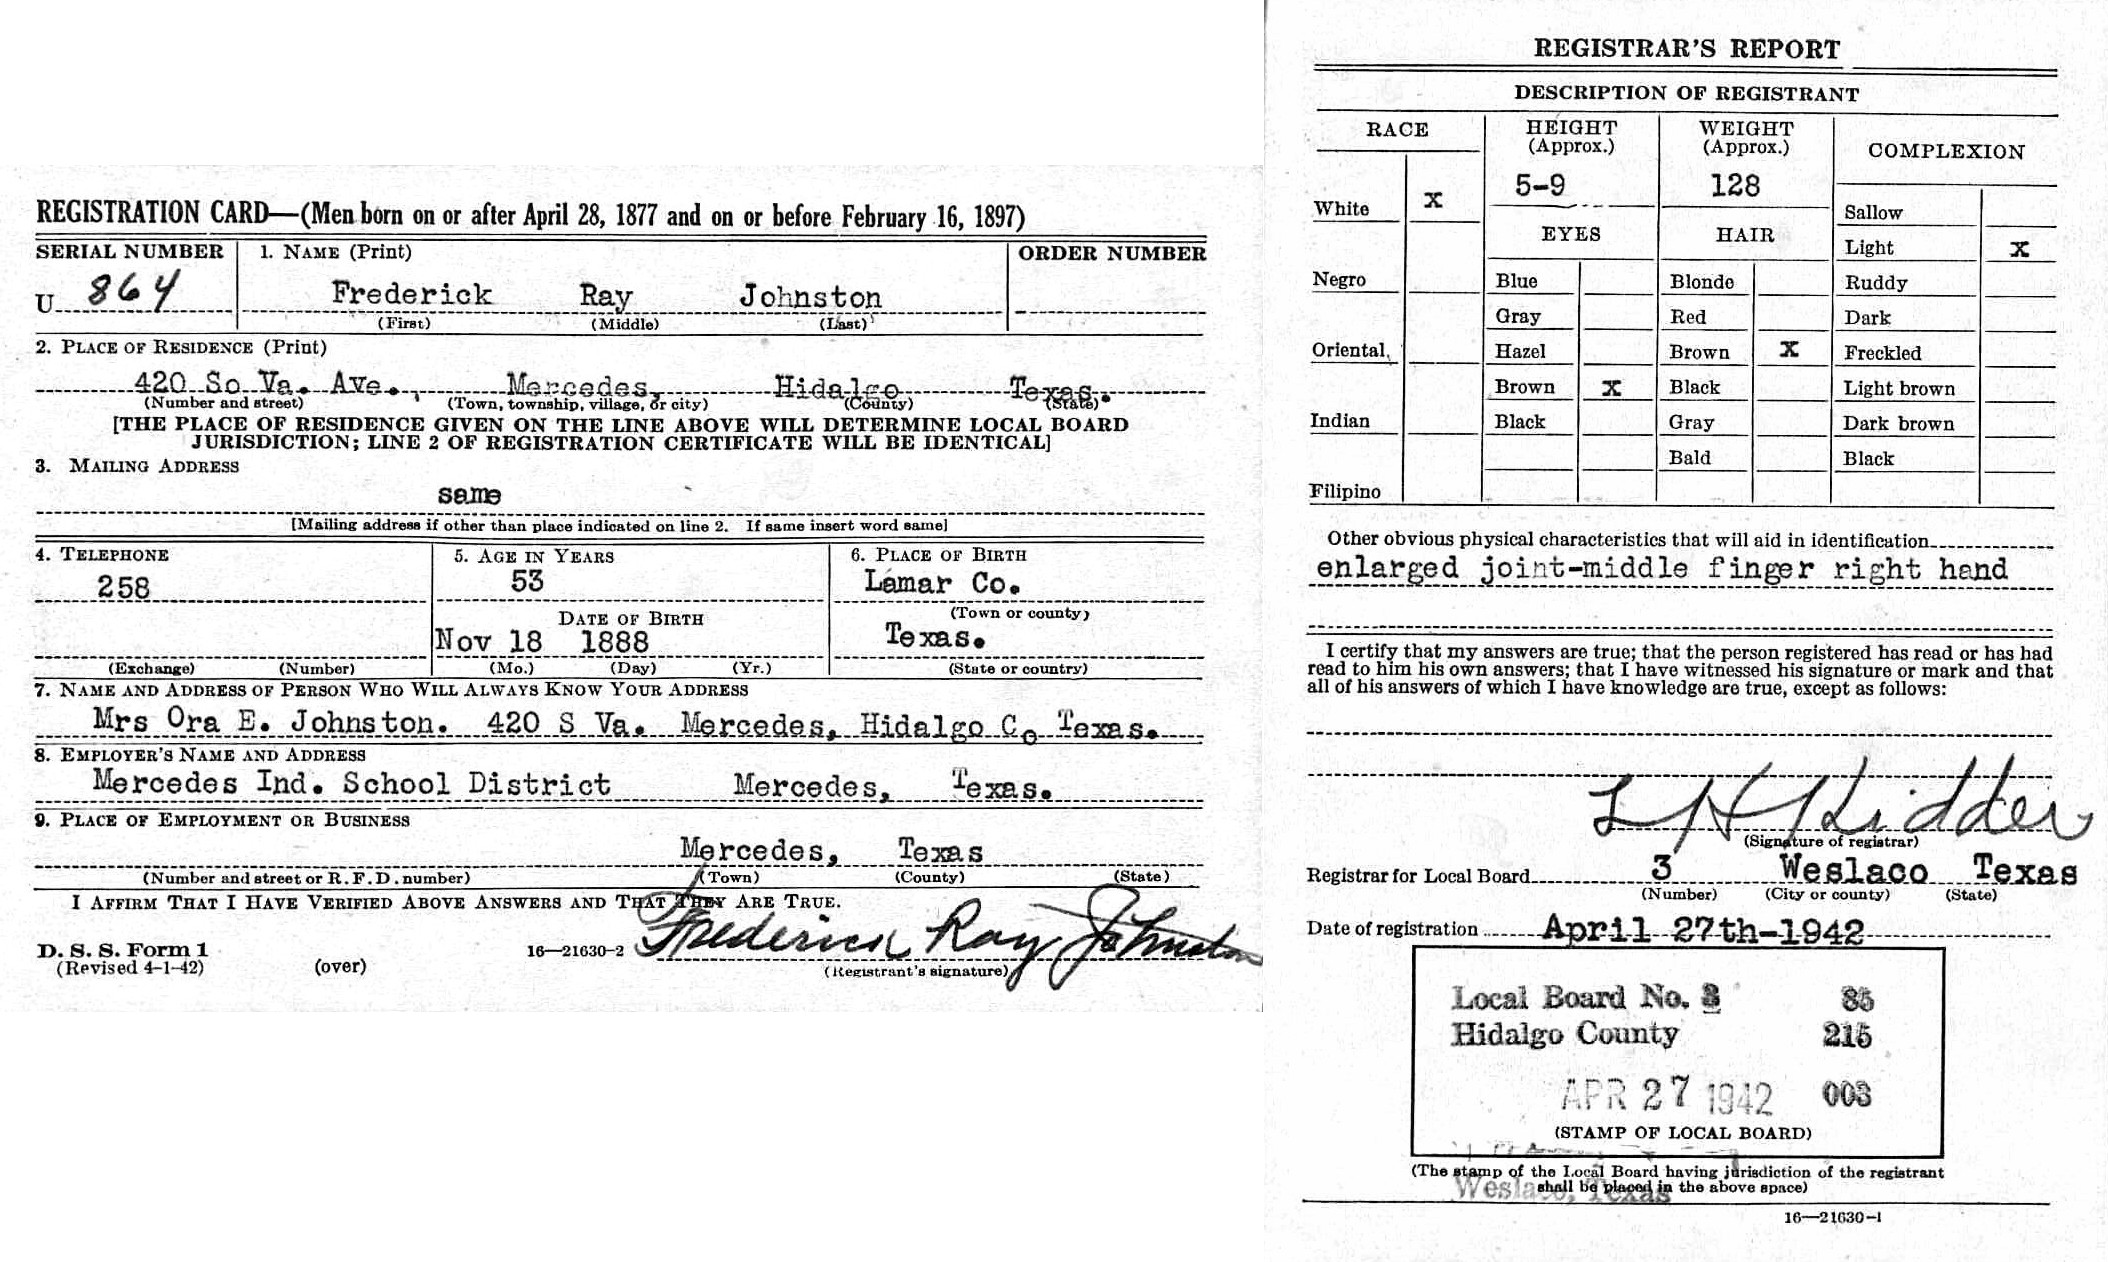 REGISTRATION CARD—(Men born on or after April 28, 1877 and on or before February 16, 1897)
SERIAL NUMBER 1. NAME (Print) ORDER NUMBER
U 864 Frederick Ray Johnston
(First) (Middle) (Last)
2. PLACE OF RESIDENCE (Print)
420 So Va. Ave., Mercedes, Hidalgo Texas.
(Number and street) (Town, township, village, or city) (County) (State)
[THE PLACE OF RESIDENCE GIVEN ON THE LINE ABOVE WILL DETERMINE LOCAL BOARD
JURISDICTION; LINE 2 OF REGISTRATION CERTIFICATE WILL BE IDENTICAL]
3. MAILING ADDRESS
same
[Mailing address if other than place indicated on line 2. If same insert word same]
4. TELEPHONE 5. AGE IN YEARS 6. PLACE OF BIRTH
258 53 Lamar Co.
DATE OF BIRTH (Town or county)
Nov 18 1888 Texas.
(Exchange) (Number) (Mo.) (Day) (Yr.) (State or country)
7. NAME AND ADDRESS OF PERSON WHO WILL ALWAYS KNOW YOUR ADDRESS
Mrs Ora E. Johnston. 420 S Va. Mercedes, Hidalgo Co Texas.
8. EMPLOYER'S NAME AND ADDRESS
Mercedes Ind. School District Mercedes, Texas.
9. PLACE OF EMPLOYMENT OR BUSINESS
Mercedes, Texas
(Number and street or R.F.D. number) (Town) (County) (State)
I AFFIRM THAT I HAVE VERIFIED ABOVE ANSWERS AND THAT THEY ARE TRUE.
D. S. S. Form 1
(Revised 4-1-42) (over) 16—21630-2 Frederick Ray Johnston
(Registrant's signature)
REGISTRAR'S REPORT
DESCRIPTION OF REGISTRANT
RACE HEIGHT (Approx.) WEIGHT (Approx.) COMPLEXION
5-9 128
White X EYES HAIR Sallow
Light X
Negro Blue Blonde Ruddy
Gray Red Dark
Oriental Hazel Brown X Freckled
Brown X Black Light brown
Indian Black Gray Dark brown
Bald Black
Filipino
Other obvious physical characteristics that will aid in identification
enlarged joint-middle finger right hand
I certify that my answers are true; that the person registered has read or has had
read to him his own answers; that I have witnessed his signature or mark and that
all of his answers of which I have knowledge are true, except as follows:
L H Kidder
(Signature of registrar)
Registrar for Local Board 3 Weslaco Texas
(Number) (City or county) (State)
Date of registration April 27th-1942
Local Board No. 3 85
Hidalgo County 215
APR 27 1942 003
(STAMP OF LOCAL BOARD)
(The stamp of the Local Board having jurisdiction of the registrant
shall be placed in the above space)
Weslaco, Texas
16—21630-1